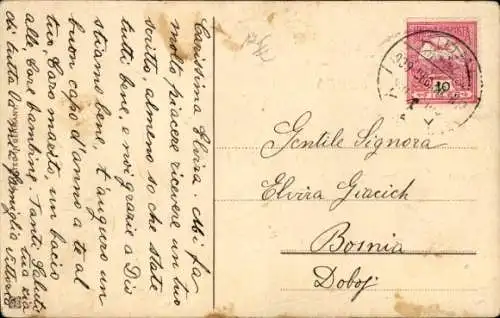 Carissima Elvira. Mi fa
molto piacere ricevere un tuo
scritto, almeno so che state
tutti bene, e noi grazie a Dio
stiamo bene, t'auguro un
buon capo d'anno a te al
tuo, caro marito, un bacio
alle, care bambine. Tanti saluti
di tutta la mia famiglia tua zia
Vittoria
10
Gentile Signora
Elvira Giacich
Bosnia
Doboj